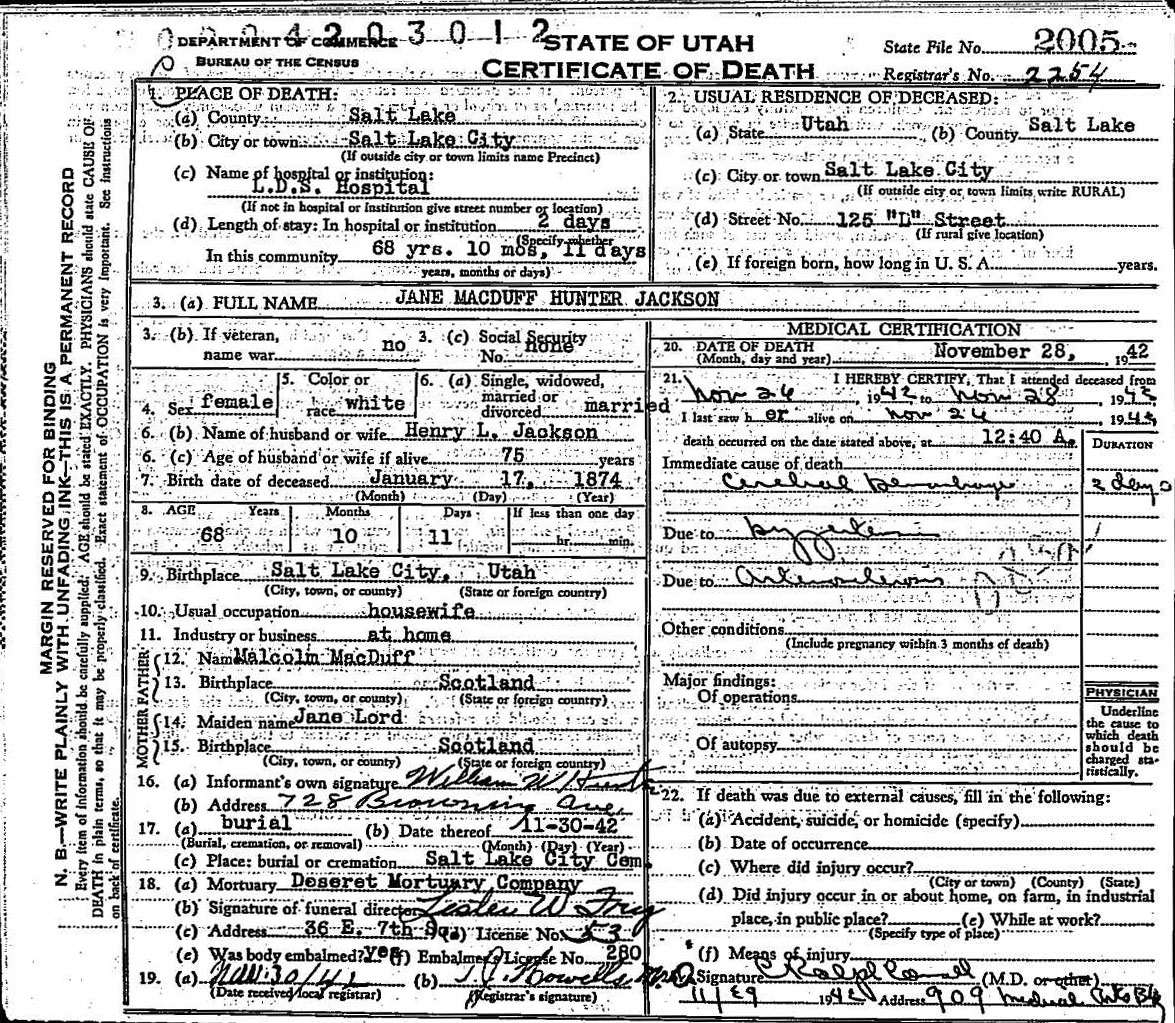 0 0 4 2 0 3 0 1 2
DEPARTMENT OF COMMERCE
BUREAU OF THE CENSUS
STATE OF UTAH
CERTIFICATE OF DEATH
State File No. 2005
Registrar's No. 2254
MARGIN RESERVED FOR BINDING
N. B.—WRITE PLAINLY WITH UNFADING INK—THIS IS A PERMANENT RECORD
Every item of information should be carefully supplied. AGE should be stated EXACTLY. PHYSICIANS should state CAUSE OF
DEATH in plain terms, so that it may be properly classified. Exact statement of OCCUPATION is very important. See instructions
on back of certificate.
1. PLACE OF DEATH:
(a) County Salt Lake
(b) City or town Salt Lake City
(If outside city or town limits name Precinct)
(c) Name of hospital or institution:
L.D.S. Hospital
(If not in hospital or institution give street number or location)
(d) Length of stay: In hospital or institution 2 days
(Specify whether
In this community 68 yrs. 10 mos, 11 days
years, months or days)
2. USUAL RESIDENCE OF DECEASED:
(a) State Utah (b) County Salt Lake
(c) City or town Salt Lake City
(If outside city or town limits write RURAL)
(d) Street No. 125 "L" Street
(If rural give location)
(e) If foreign born, how long in U. S. A. years.
3. (a) FULL NAME JANE MACDUFF HUNTER JACKSON
3. (b) If veteran, name war no
3. (c) Social Security No. none
4. Sex female
5. Color or race white
6. (a) Single, widowed, married or divorced married
6. (b) Name of husband or wife Henry L. Jackson
6. (c) Age of husband or wife if alive 75 years
7. Birth date of deceased January 17, 1874
(Month) (Day) (Year)
8. AGE Years Months Days If less than one day
68 10 11 hr. min.
9. Birthplace Salt Lake City, Utah
(City, town, or county) (State or foreign country)
10. Usual occupation housewife
11. Industry or business at home
FATHER
12. Name Malcolm MacDuff
13. Birthplace Scotland
(City, town, or county) (State or foreign country)
MOTHER
14. Maiden name Jane Lord
15. Birthplace Scotland
(City, town, or county) (State or foreign country)
16. (a) Informant's own signature William W Hunter
(b) Address 728 Browning Ave,
17. (a) burial (b) Date thereof 11-30-42
(Burial, cremation, or removal) (Month) (Day) (Year)
(c) Place: burial or cremation Salt Lake City Cem.
18. (a) Mortuary Deseret Mortuary Company
(b) Signature of funeral director
(c) Address 36 E. 7th So. (d) License No. 53
(e) Was body embalmed? yes (f) Embalmer License No. 280
19. (a) Nov 30/42 (b)
(Date received local registrar) (Registrar's signature)
MEDICAL CERTIFICATION
20. DATE OF DEATH
(Month, day and year) November 28, 1942
21. I HEREBY CERTIFY, That I attended deceased from
Nov 26, 1942 to Nov 28, 1942
I last saw her alive on Nov 26, 1942
death occurred on the date stated above, at 12:40 A.
DURATION
Immediate cause of death
Cerebral hemorrhage 2 days
Due to hypertension
Due to Arteriosclerosis
Other conditions
(Include pregnancy within 3 months of death)
Major findings:
Of operations
Of autopsy
PHYSICIAN
Underline
the cause to
which death
should be
charged sta-
tistically.
22. If death was due to external causes, fill in the following:
(a) Accident, suicide, or homicide (specify)
(b) Date of occurrence
(c) Where did injury occur?
(City or town) (County) (State)
(d) Did injury occur in or about home, on farm, in industrial
place, in public place? (e) While at work?
(Specify type of place)
(f) Means of injury
Signature (M.D. or other)
11/29 1942 Address 909 Medical Arts Bldg